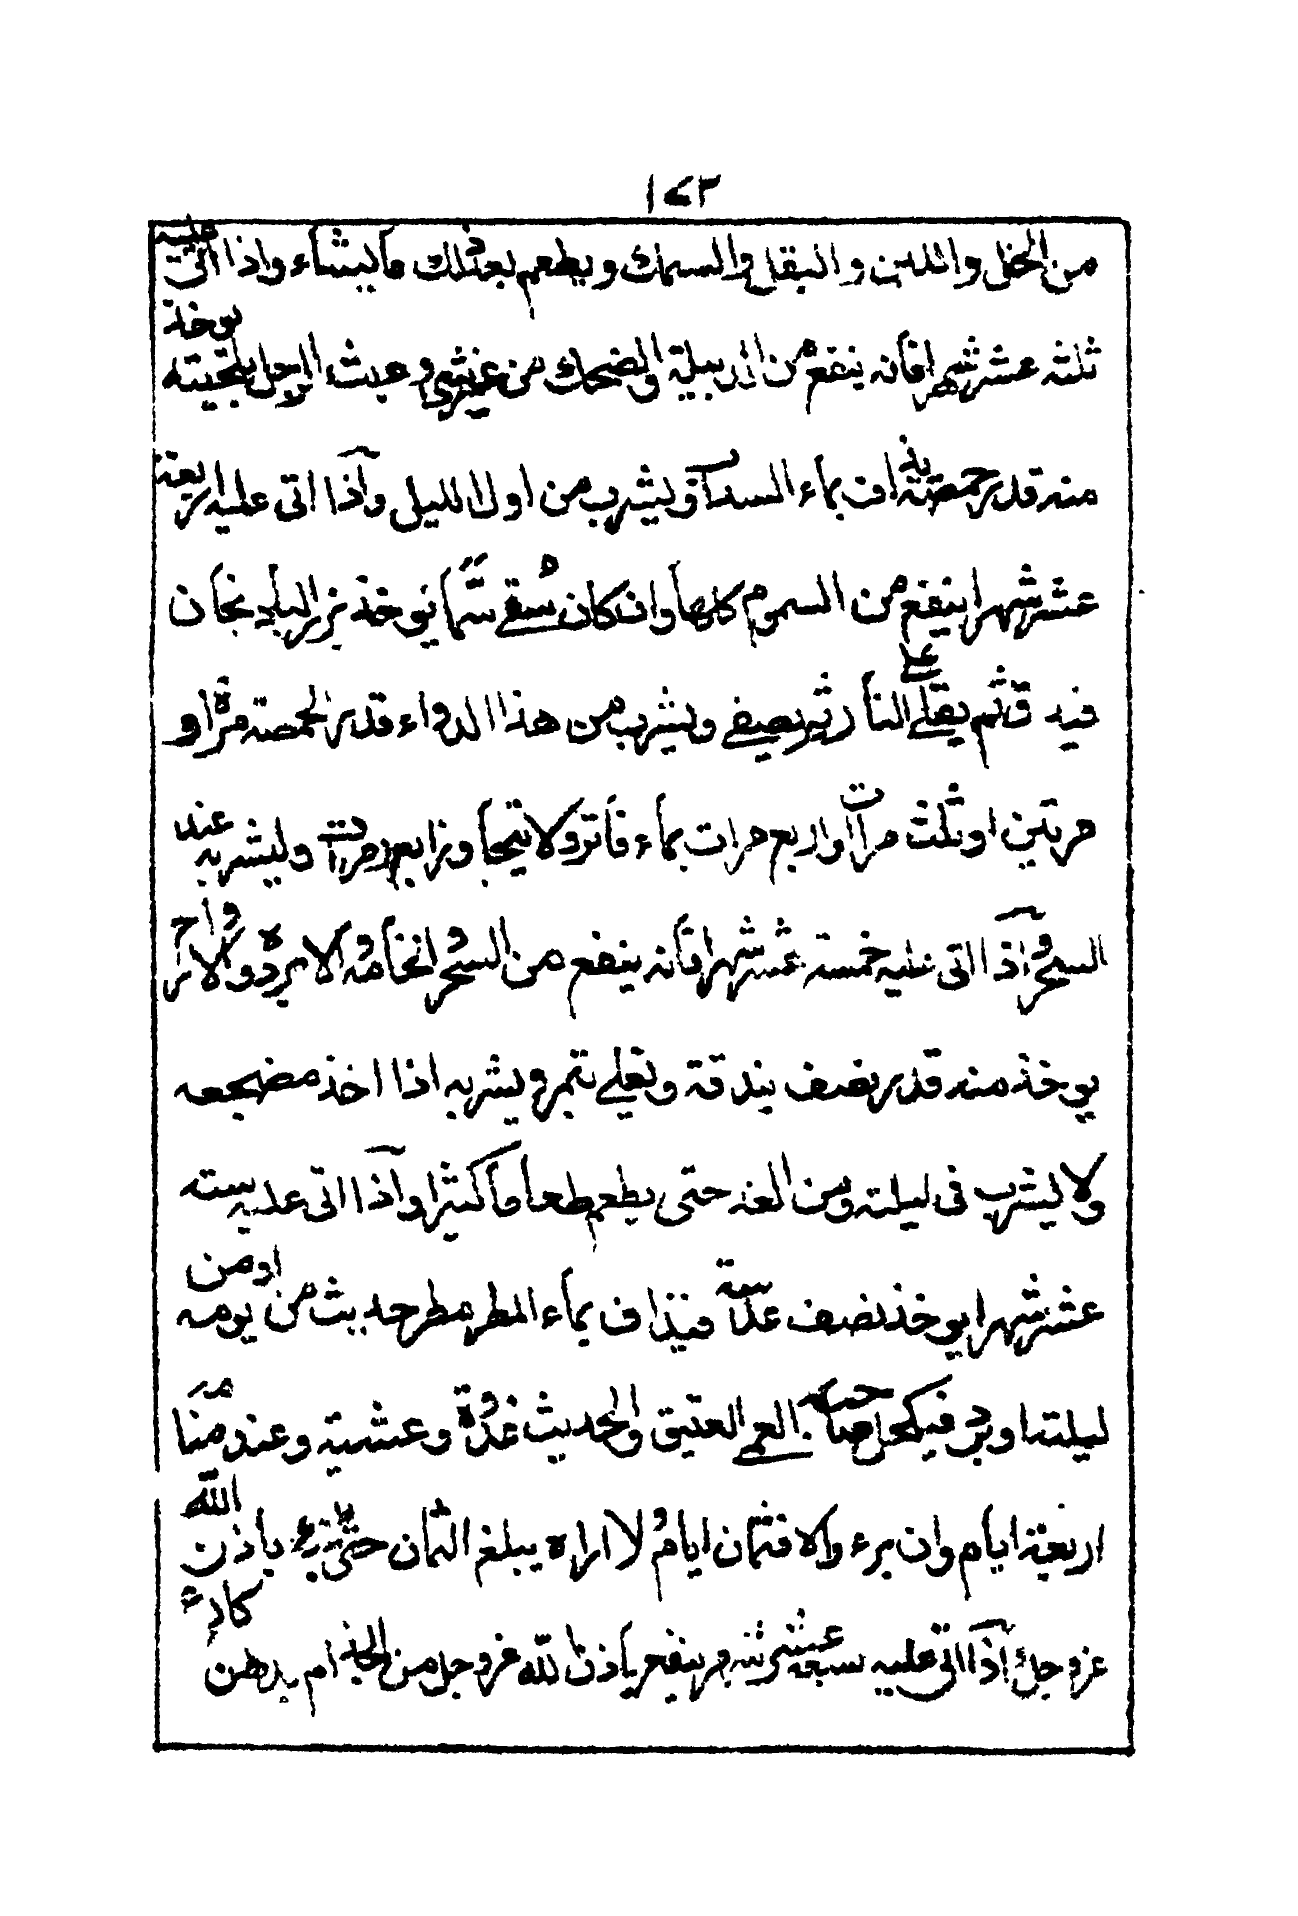 ١٤٣
من الخل واللبن والبقل والسمك ويطعم بعد ذلك ما يشاء واذا اتى عليه
ثلثة عشر شهرا فانه ينفع من الدبيلة والضحك من غير شئ وعبث الرجل بلحيته يوخذ
منه قدر حمصة يذاف بماء السداب ويشرب من اول الليل واذا اتى عليه اربعة
عشر شهرا ينفع من السموم كلها وان كان سقى سما يوخذ بزر الباذنجان
فيدق ثم يغلى على النار ثم يصفى ويشرب من هذا الدواء قدر الحمصة مرة او
مرتين او ثلث مرات او اربع مرات بماء فاتر ولا يتجاوز اربع مرات وليشربه عند
السحر واذا اتى عليه خمسة عشر شهرا فانه ينفع من السحر والخامة والابردة والارواح
يوخذ منه قدر نصف بندقة ويغلى بتمر ويشربه اذا اخذ مضجعه
ولا يشرب فى ليلته ومن الغد حتى يطعم طعاما كثيرا واذا اتى عليه ستة
عشر شهرا يوخذ نصف عدسة فيذاف بماء المطر مطر حديث من يومه او من
ليلته او برد فيكحل صاحب العمى العتيق والحديث غدوة وعشية وعند منامه
اربعة ايام وان برء والا فثمان ايام ولا اراه يبلغ الثمان حتى يبرء باذن الله
عز وجل واذا اتى عليه سبعة عشر شهر ينفع باذن الله عز وجل من الجذام بدهن